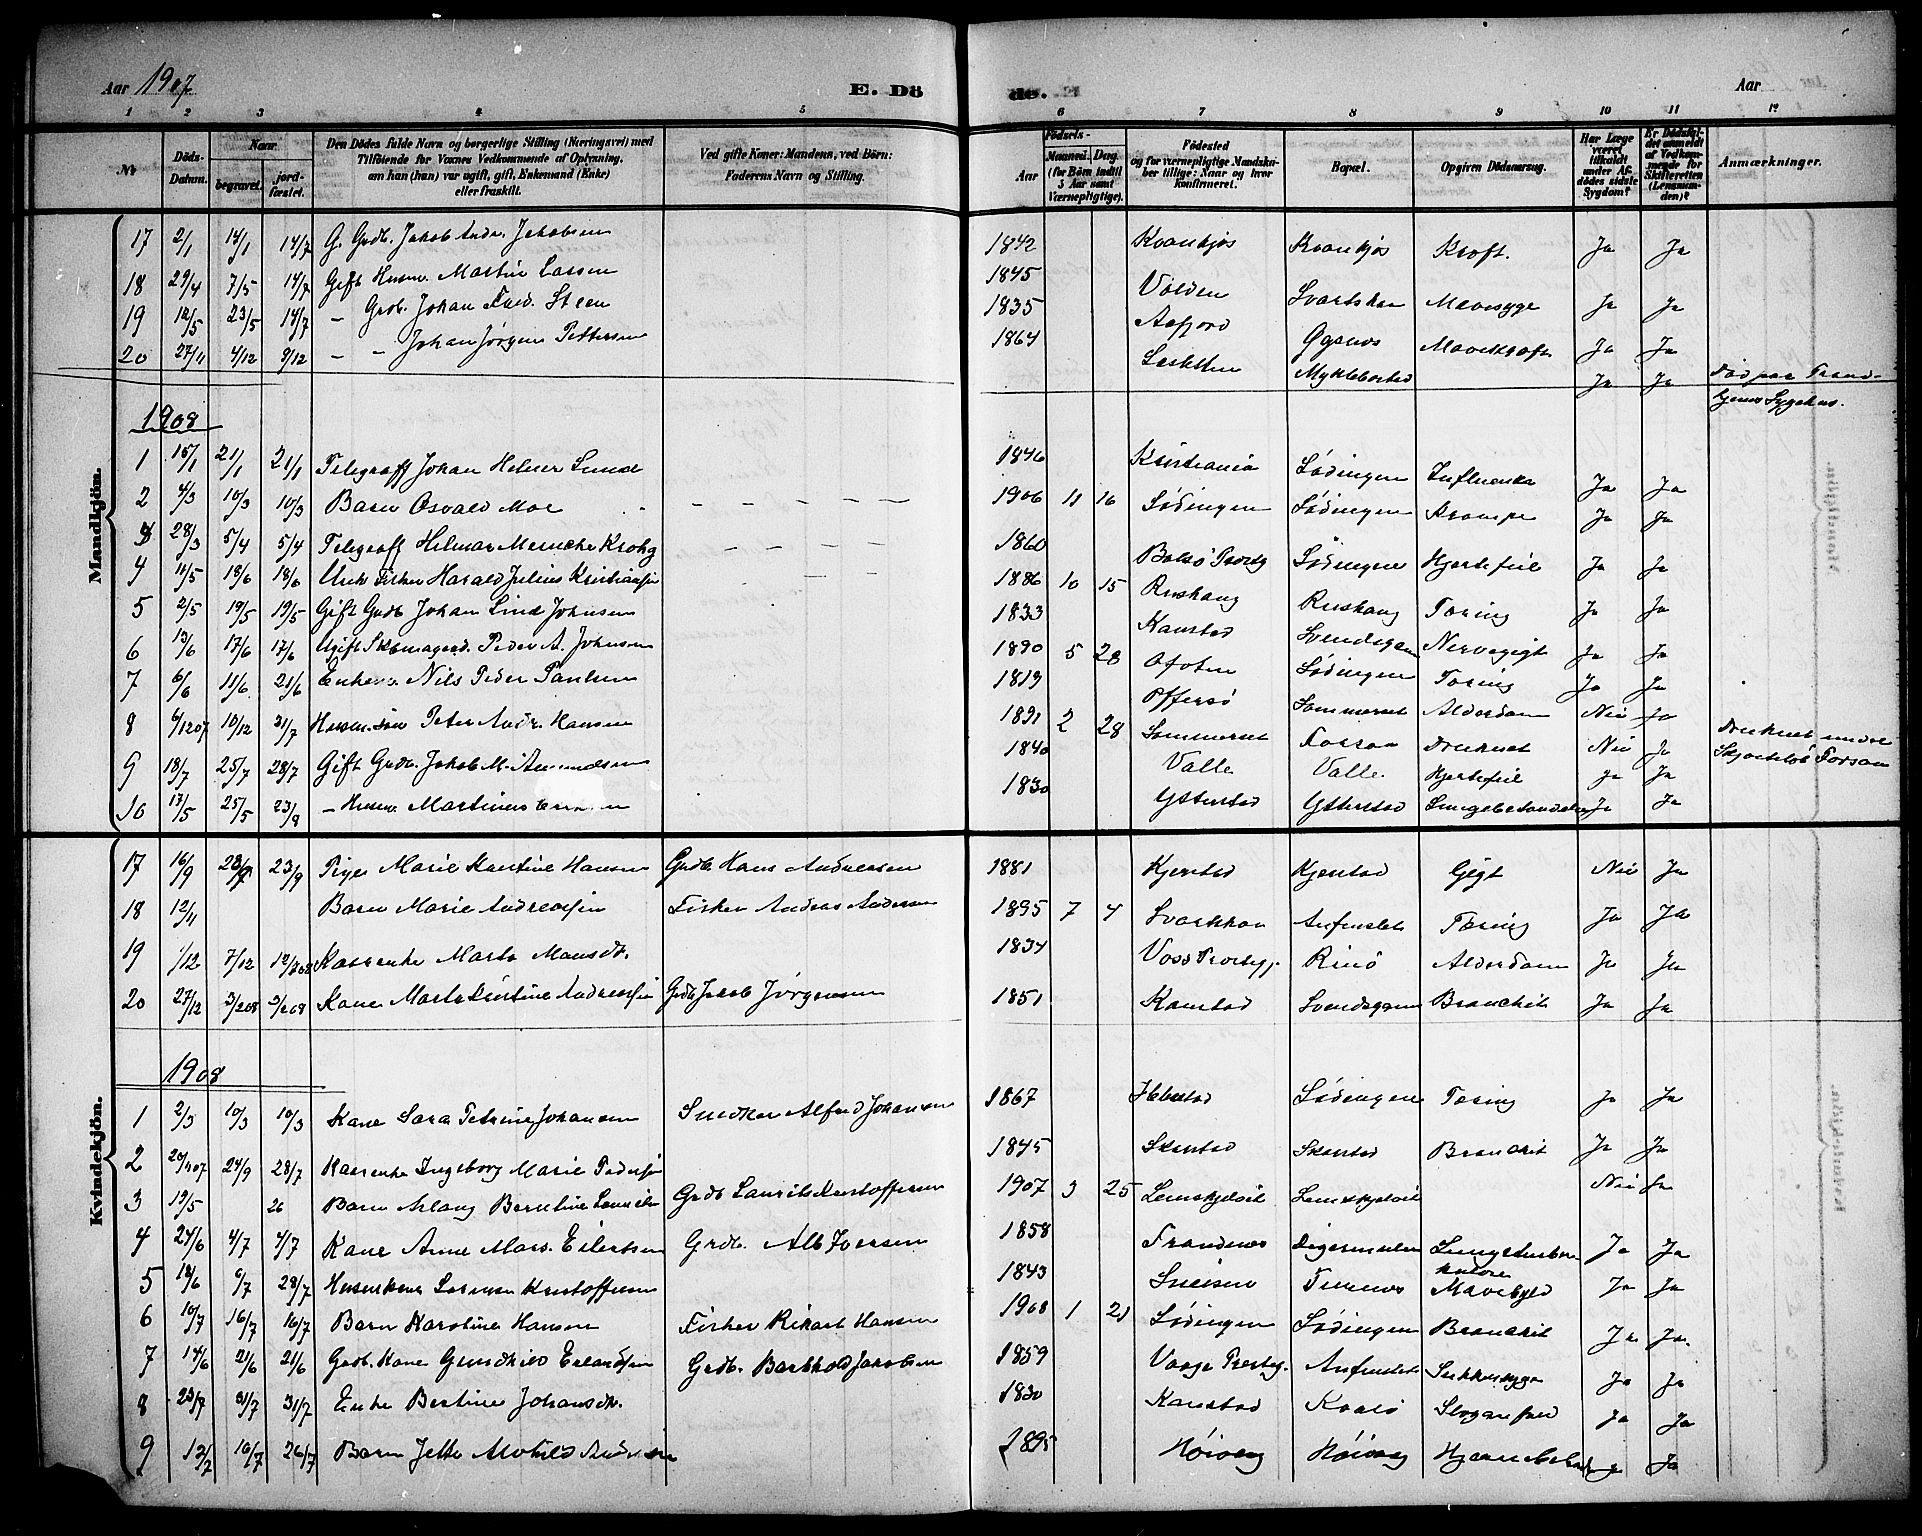 Aar 1907
E. Dö
de.
Aar
1 2 3 4 5 6 7 8 9 10 11 12
№
Döds-Datum.
Naar
begravet.
jordfæstet.
Den Dödes fulde Navn og borgerlige Stilling (Næringsvei) med Tilföiende for Voxnes Vedkommende af Oplysning, om han (hun) var ugift, gift, Enkemand (Enke) eller fraskilt.
Ved gifte Koner: Mandens, ved Börn: Faderens Navn og Stilling.
Födsels-
Aar
Maaned. Dag
(for Börn indtil 5 Aar samt Værnepligtige).
Födested og for værnepligtige Mandskaber tillige: Naar og hvor konfirmeret.
Bopæl.
Opgiven Dödsaarsag.
Har Læge været tilkaldt under Afdödes sidste Sygdom?
Er Dödsfaldet anmeldt af Vedkommende for Skifteretten (Lensmanden)?
Anmærkninger.
Mandkjön.
17 2/1 14/1 14/7 G. Grdb. Jakob Andr. Jakobsen 1842 Kvankjøs Kvankjøs Kræft. Ja Ja
18 29/4 7/5 14/7 Gift Husm. Martin Larsen 1845 Volden Svartskar Mavesyge Ja Ja
19 12/5 23/5 14/7 – Grdb. Johan Fred. Steen 1835 Aafjord Øgsnes Mavekræft Ja Ja
20 27/11 4/12 9/12 – – Johan Jørgen Pettersen 1864 Myklebostad Ja Ja Död paa Trondhjems Sygehus.
1908
1 15/1 21/1 21/1 Telegraff Johan Helmer Lund 1846 Kristiania Lødingen Influenza Ja Ja
2 4/3 10/3 10/3 Barn Osvald Moe – – – – 1906 11 16 Lødingen Lødingen Krampe Ja Ja
3 28/3 5/4 5/4 Telegraff Hilmar Meincke Krohg – – – – 1860 Bolsø Prestg Lødingen Hjertefeil Ja Ja
4 11/5 18/6 18/6 Fisker Harald Julius Kristiansen 1886 10 15 Rushaug Rushaug Tæring Ja Ja
5 2/5 19/5 19/5 Gift Grdb. Johan Lind Johnsen 1833 Kanstad Svendsgam Nervegigt Ja Ja
6 13/6 17/6 17/6 Ugift Skomagerd. Peder A. Johnsen 1890 5 28 Ofoten Lødingen Tæring Ja Ja
7 6/6 11/6 21/6 Enkem. Nils Peder Paulsen 1819 Offersø Sommerset Alderdom Nei Ja
8 6/12 07 10/12 31/7 Husm. søn Peter Andr. Hansen 1891 2 28 Sommerset Forsaa Druknet Nei Ja Druknet under Forsaa
9 18/7 25/7 28/7 Gift Grdb. Jakob M. Amundsen 1840 Valle Valle. Hjertefeil Ja Ja
10 17/5 25/5 23/8 – Husm. Martinus 1830 Ytterstad Ytterstad Lungebetændelse Ja Ja
Kvindekjön.
17 16/9 23/9 23/9 Pige Marie Hansen Grdb. Hans Andreassen 1881 Kjerstad Kjerstad Gigt Nei Ja
18 12/11 Barn Marie Andreassen Fisker Andreas Andersen 1895 7 4 Svartskar Anfinslet Tæring Ja Ja
19 1/12 7/12 Marta Monsdt. 1834 Voss Prestegj. Rinø Alderdom Ja Ja
20 27/12 3/2 08 3/2 08 Kone Marta Kirstine Andreassen Grdb. Jakob Jørgensen 1851 Kanstad Svendsgam Bronchit Ja Ja
1908
1 2/3 10/3 10/3 Kone Sara Petrine Johansen Snedker Alfred Johansen 1867 Lødingen Tæring Ja Ja
2 20/9 07 24/9 28/7 Ingeborg Marie Pedersen 1845 Skarstad Skarstad Bronchit Ja Ja
3 19/5 26 Barn Arlaug Berntine Grdb. Laurits Kristoffersen 1907 3 25 Nei Ja
4 24/6 4/7 4/7 Kone Anne Mars. Eilertsen Grdb. Alb Iversen 1858 Trandenes Digermulen Ja Ja
5 18/6 6/7 28/7 Kristoffersen 1843 Ja Ja
6 10/7 16/7 16/7 Barn Karoline Hansen Fisker Rikart Hansen 1908 1 21 Lødingen Lødingen Bronchit Ja Ja.
7 14/6 21/6 21/6 Grdb. Kone Gundhild Erlandsen Grdb. Barthold Jakobsen 1859 Vaage Presteg. Anfinslet Sukkersyge Ja Ja
8 23/7 31/7 31/7 Enke Bertine Johansdt. 1830 Kanstad Kvalø Slaganfald Ja Ja
9 12/7 16/7 26/7 Barn Jette Alvhild 1895 Høivaag Høivaag Ja